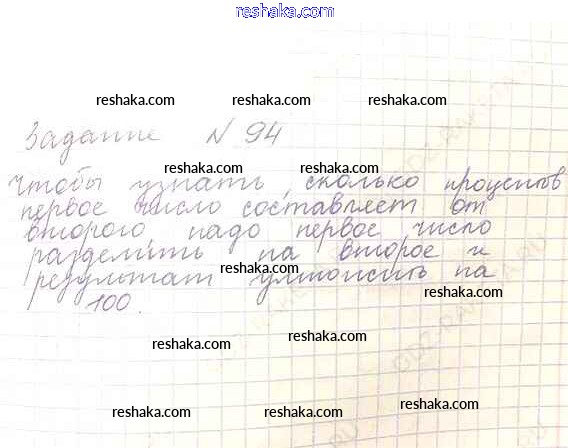 reshaka.com
reshaka.com reshaka.com reshaka.com
Задание № 94
reshaka.com reshaka.com
Чтобы узнать, сколько процентов
первое число составляет от
второго надо первое число
разделить на второе и
reshaka.com
результат умножить на
reshaka.com
100.
reshaka.com reshaka.com
reshaka.com reshaka.com reshaka.com